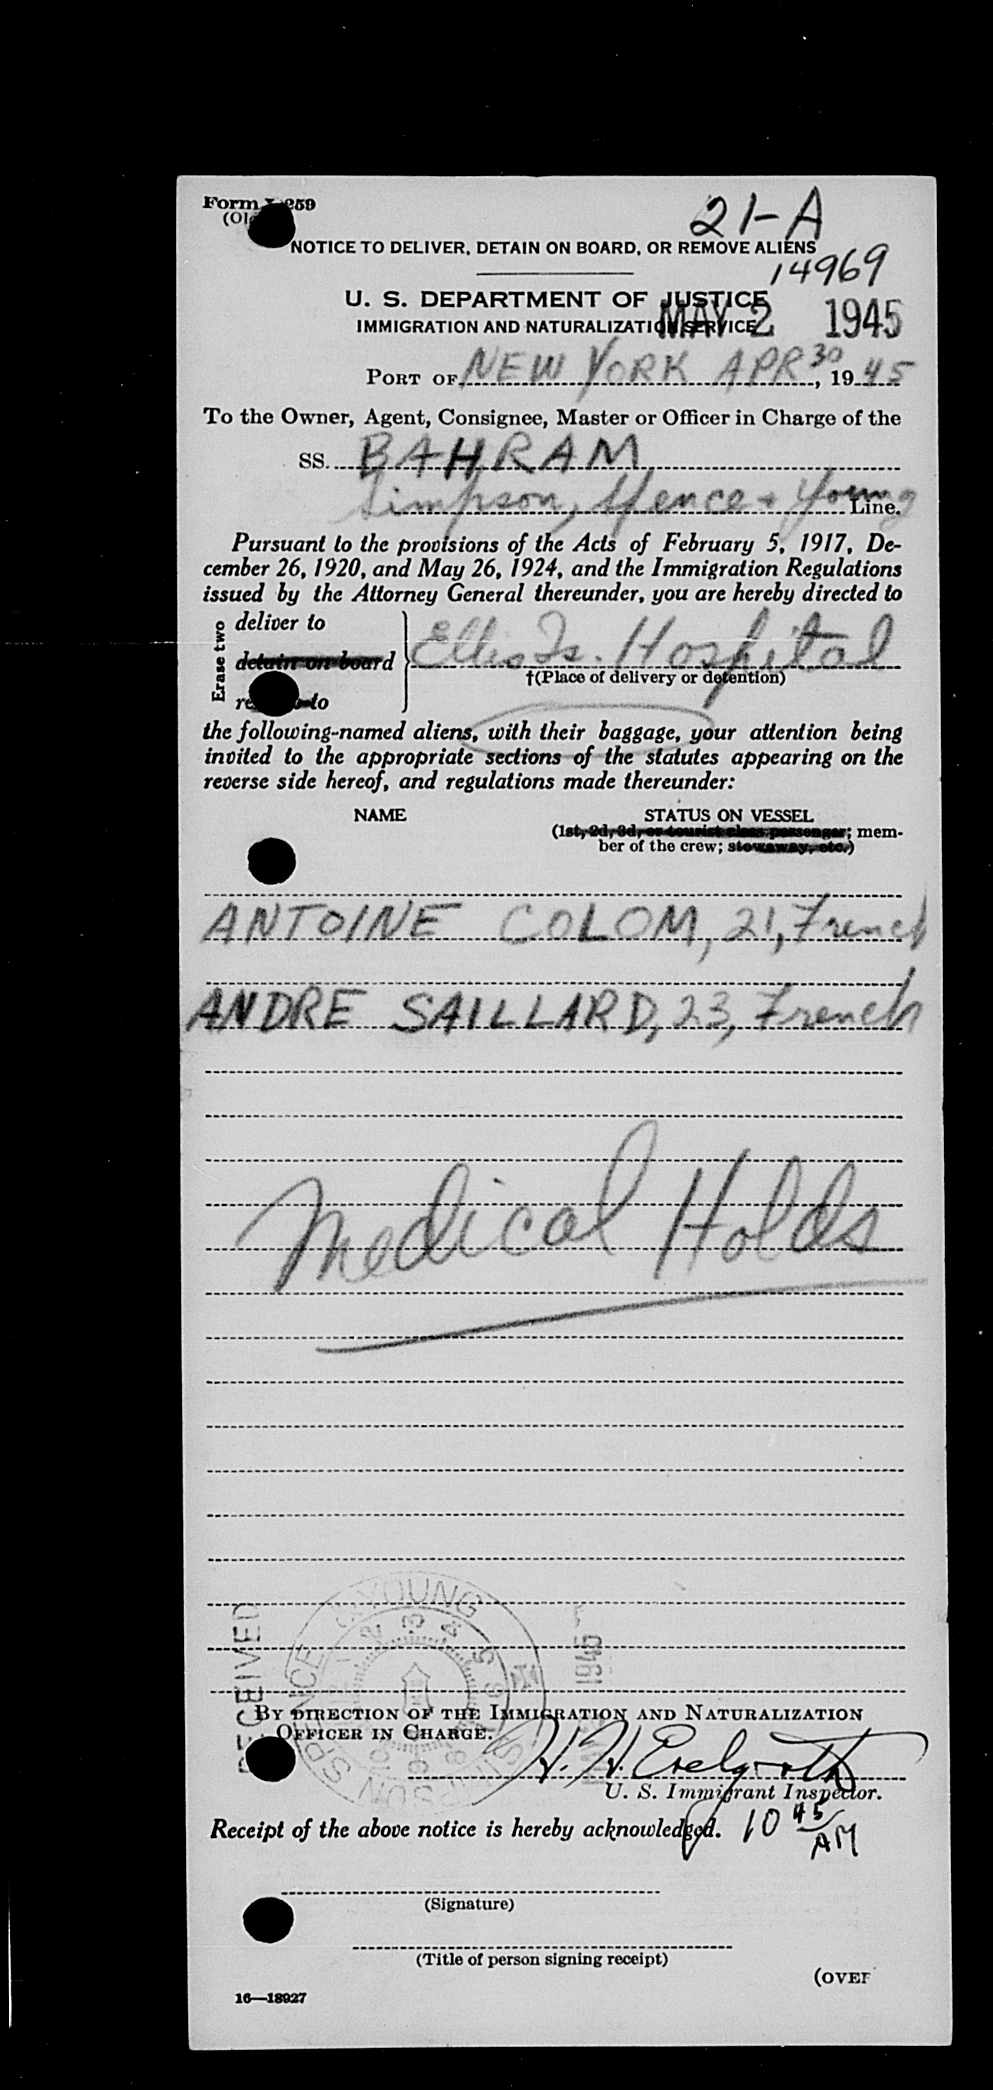 Form I-259
21-A
NOTICE TO DELIVER, DETAIN ON BOARD, OR REMOVE ALIENS
14969
U. S. DEPARTMENT OF JUSTICE
IMMIGRATION AND NATURALIZATION SERVICE
MAY 2 1945
PORT OF NEW YORK APR 30, 1945
To the Owner, Agent, Consignee, Master or Officer in Charge of the
SS. BAHRAM
Simpson, Spence + Young Line.
Pursuant to the provisions of the Acts of February 5, 1917, De-
cember 26, 1920, and May 26, 1924, and the Immigration Regulations
issued by the Attorney General thereunder, you are hereby directed to
Erase two
deliver to
detain on board
Ellis Is. Hospital
†(Place of delivery or detention)
the following-named aliens, with their baggage, your attention being
invited to the appropriate sections of the statutes appearing on the
reverse side hereof, and regulations made thereunder:
NAME STATUS ON VESSEL
(1st, 2d, 3d, or tourist class passenger; mem-
ber of the crew; stowaway, etc.)
ANTOINE COLOM, 21, French
ANDRE SAILLARD, 23, French
Medical Holds
RECEIVED
SIMPSON SPENCE & YOUNG
2 3 4 5 6 7 8 9 10
1945
BY DIRECTION OF THE IMMIGRATION AND NATURALIZATION
OFFICER IN CHARGE.
U. S. Immigrant Inspector.
Receipt of the above notice is hereby acknowledged. 10 45 AM
(Signature)
(Title of person signing receipt)
(OVER
16—18927